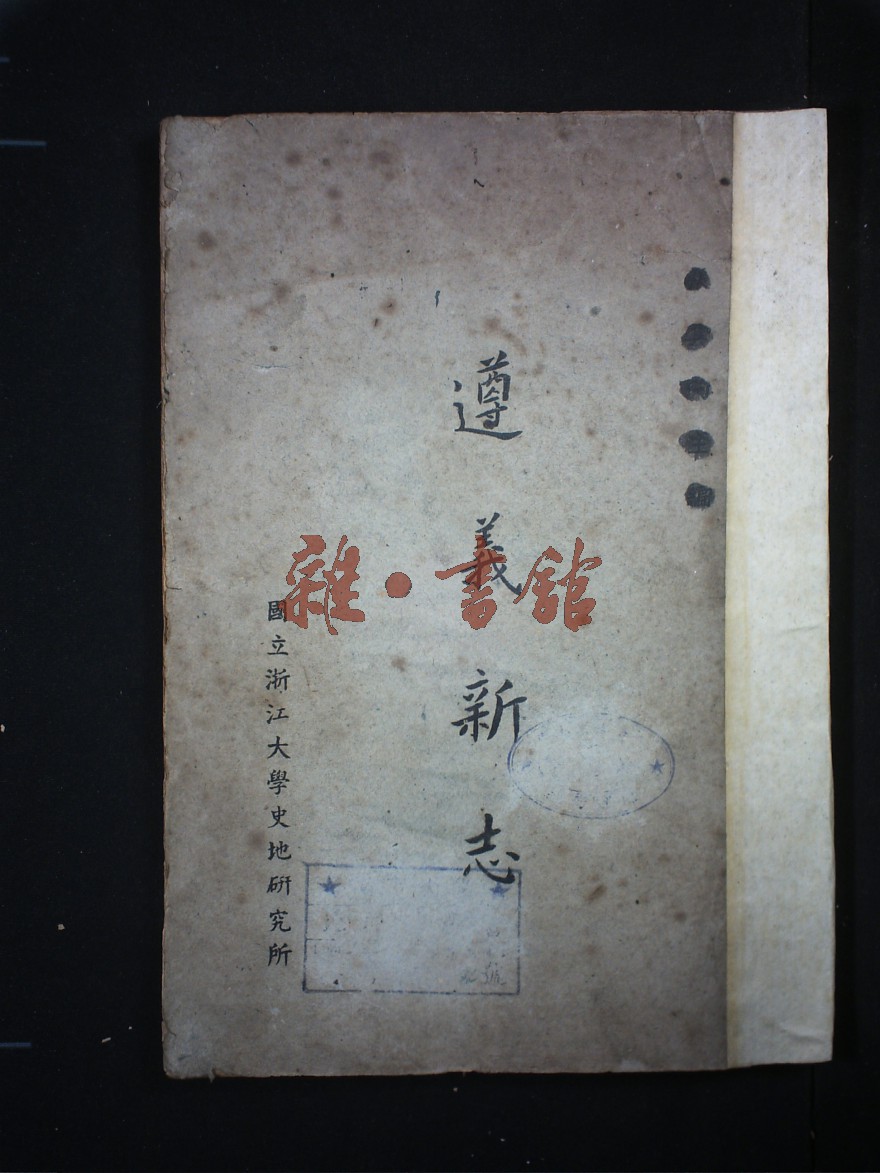 遵義新志
國立浙江大學史地研究所
雜·書館